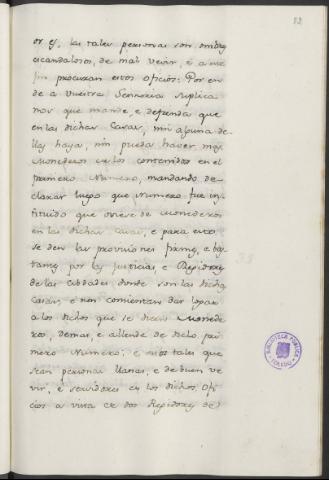 82
or es, las tales personas son omes
escandalosos, de mal vevir, e a ese
fin procuran estos oficios: Por en-
de a vuestra Señoria suplica
mos que mande, e defienda que
en las dichas Casas, nin alguna de-
llas haya, nin pueda haver mas
Monederos de los contenidos en el
primero Numero, mandando de-
clarar luego que Numero fue ins-
tituido que oviese de Monederos
en las dichas Casas, e para esto
se den las provisiones firmes, e bas-
tantes por las Justicias, e Regidores
de las Cibdades donde son las dichas
Casas, e non consientan dar logar
a los dichos que se dicen Monede
ros, demas, e allende de dicho pri
mero Numero, e estos tales que
sean personas llanas, e de buen ve
vir, e servidores en los dichos Ofi
cios a vista de dos Regidores de
BIBLIOTECA PÚBLICA
TOLEDO